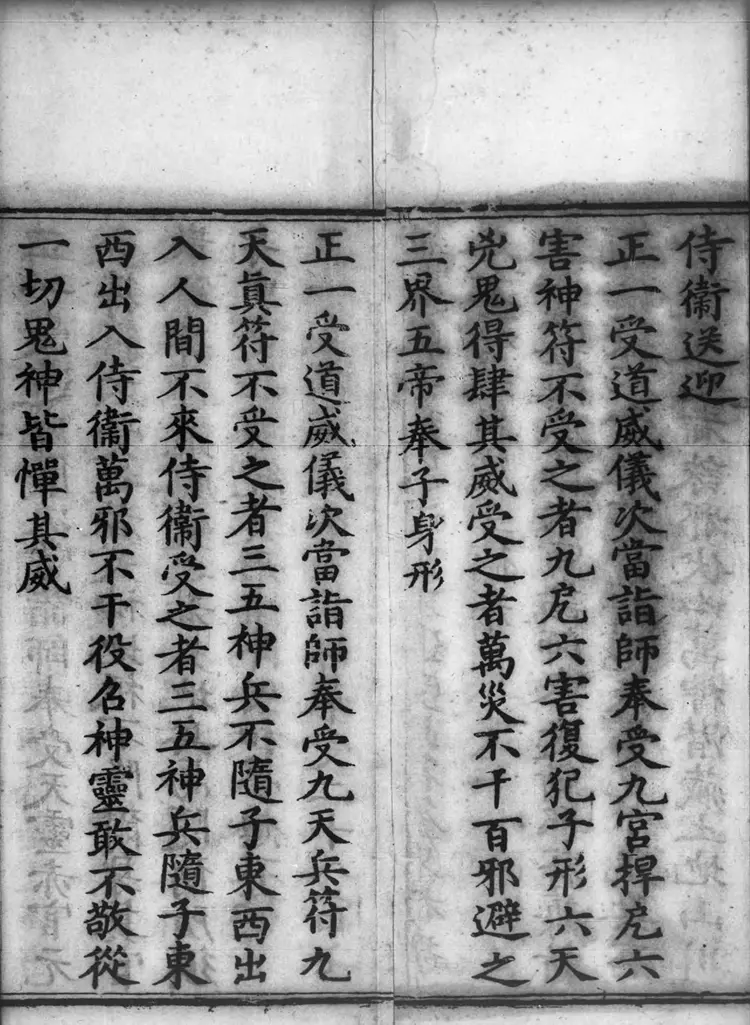 侍衞送迎
正一受道威儀次當詣師奉受九宮捍厄六
害神符不受之者九厄六害復犯子形六天
兇鬼得肆其威受之者萬災不干百邪避之
三界五帝奉子身形
正一受道威儀次當詣師奉受九天兵符九
天眞符不受之者三五神兵不隨子東西出
入人間不來侍衞受之者三五神兵隨子東
西出入侍衞萬邪不干役召神靈敢不敬從
一切鬼神皆憚其威